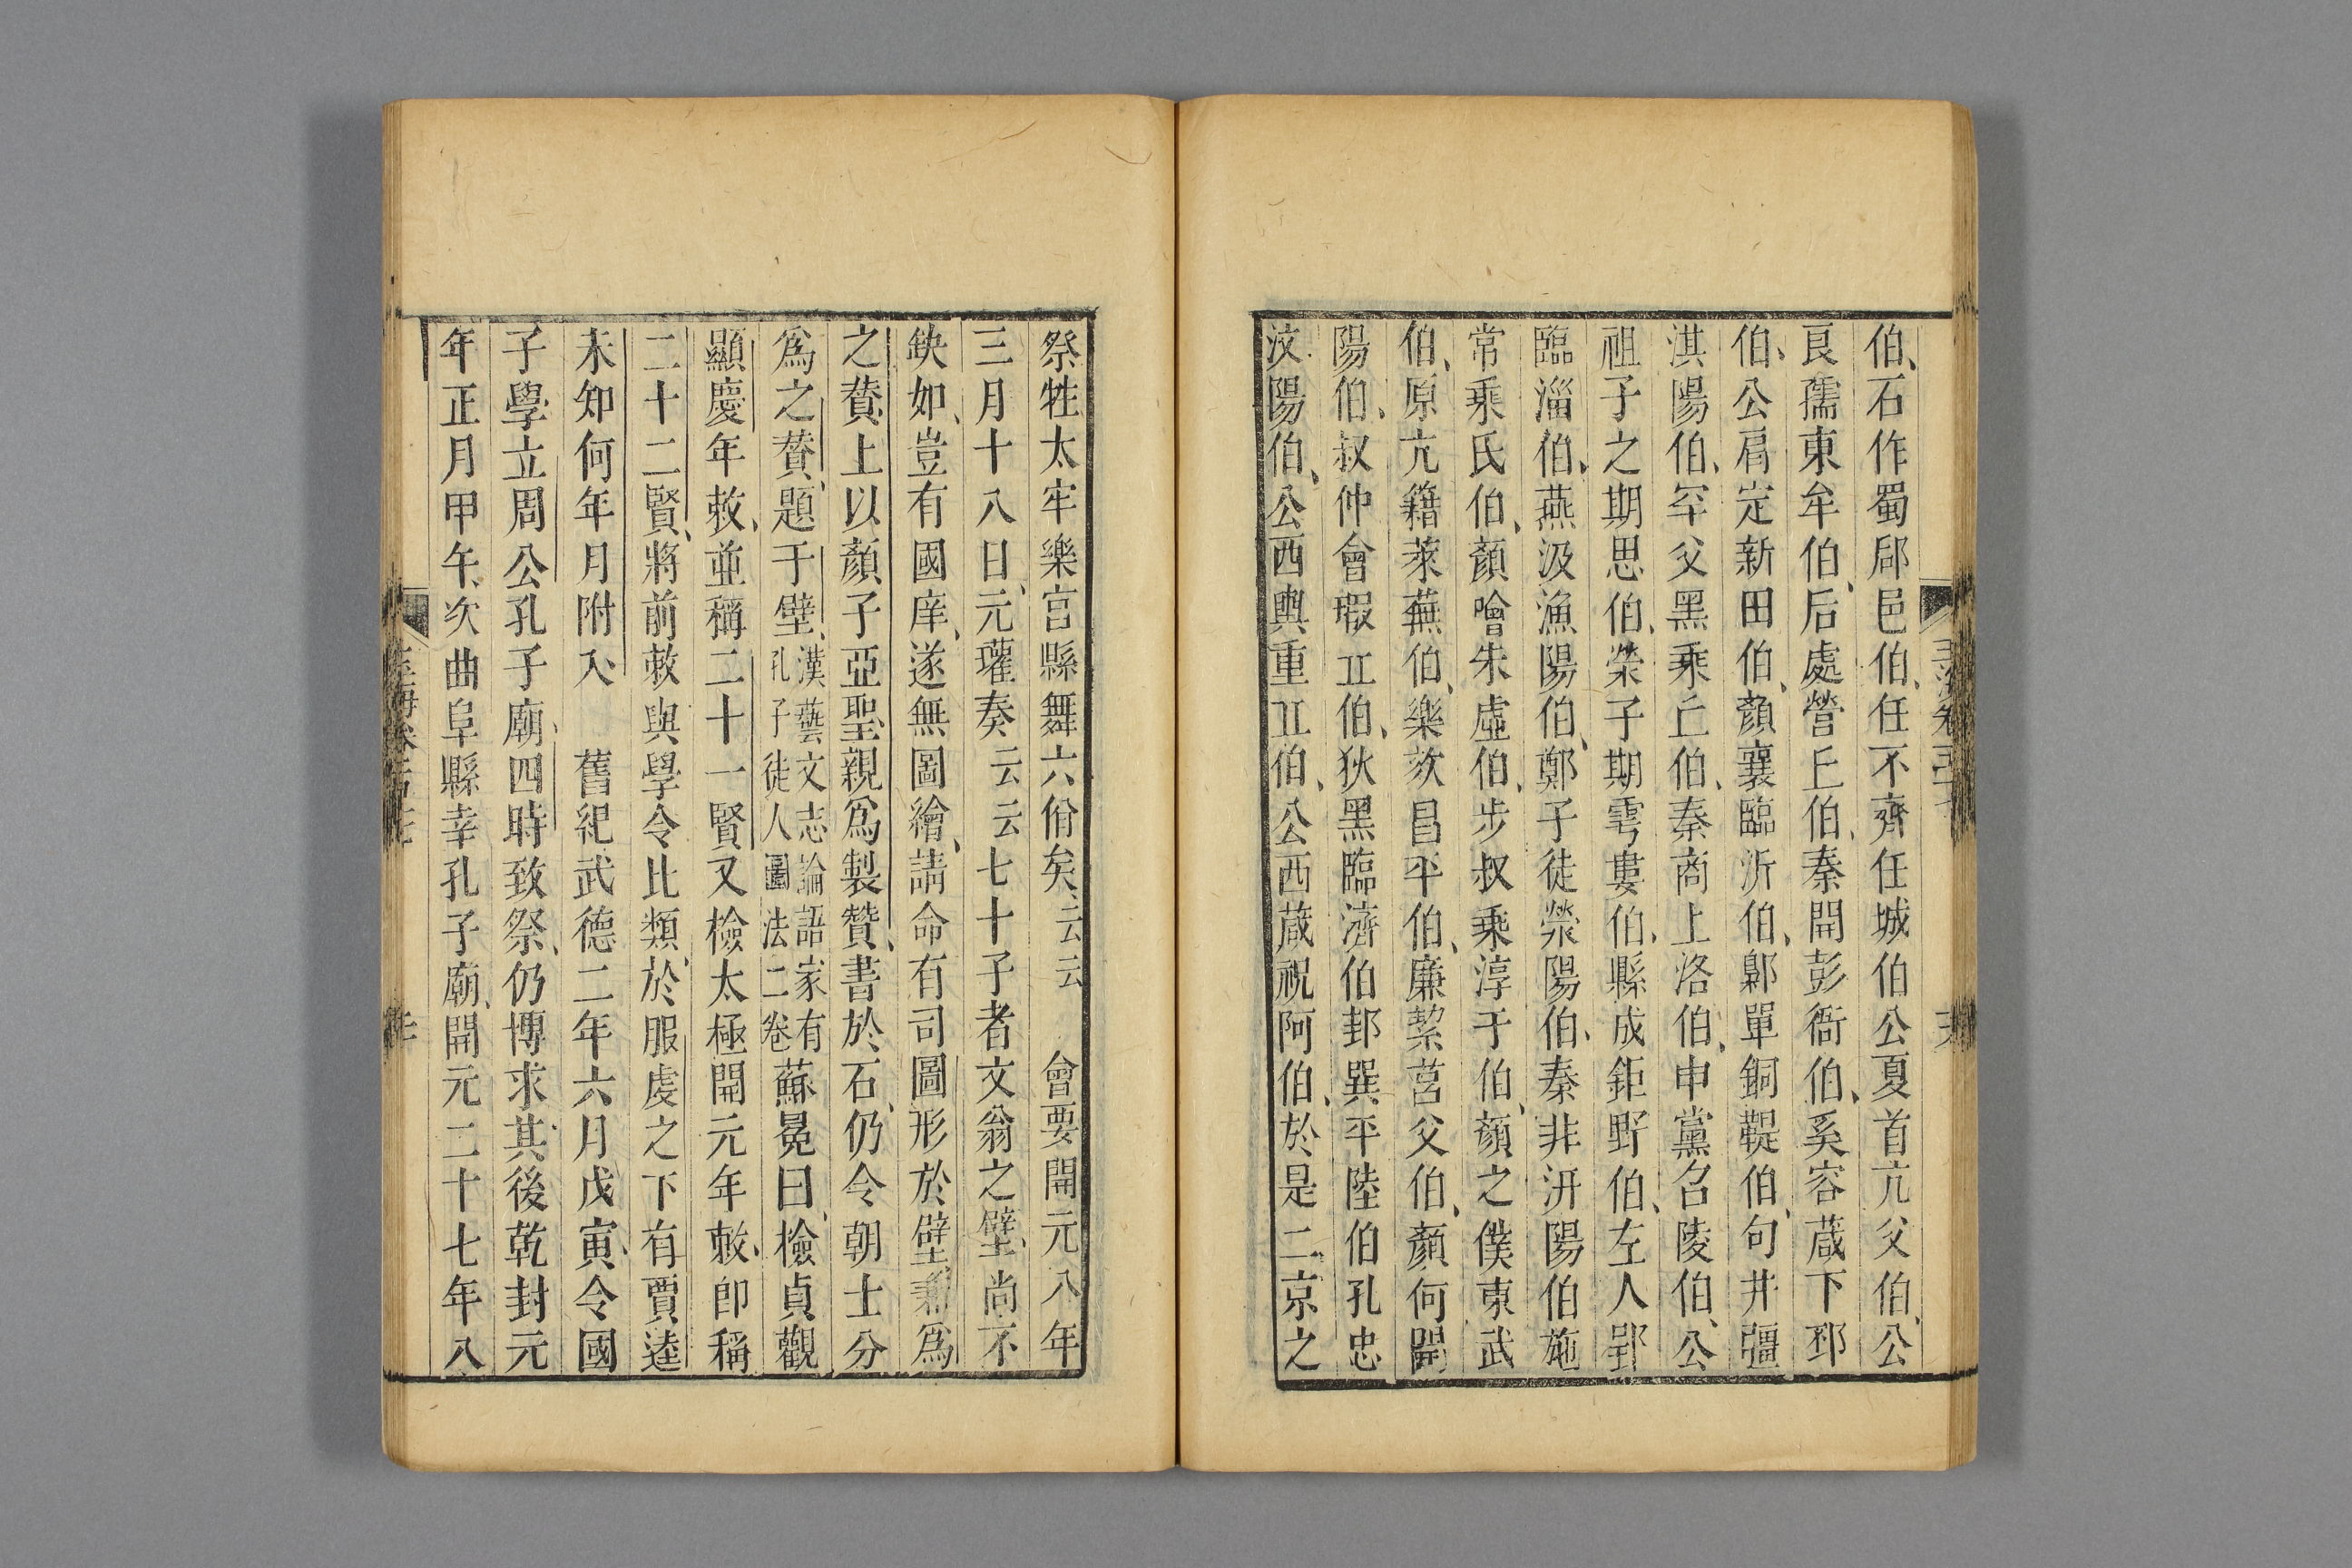 伯、石作蜀郈邑伯、任不齊任城伯公夏首亢父伯、公
良孺東牟伯、后處營丘伯、秦開彭衙伯、奚容蒧下邳
伯、公肩定新田伯、顏襄臨沂伯、鄡單銅鞮伯、句井彊
淇陽伯、罕父黑乘丘伯、秦商上洛伯、申黨召陵伯、公
祖子之期思伯、榮子期雩婁伯、縣成鉅野伯、左人郢
臨淄伯、燕汲漁陽伯、鄭子徒滎陽伯、秦非汧陽伯施
常乘氏伯、顏噲朱虛伯、步叔乘淳于伯、顏之僕東武
伯、原亢籍萊蕪伯、樂欬昌平伯、廉絜莒父伯、顏何開
陽伯、叔仲會瑕丘伯、狄黑臨濟伯邽巽平陸伯孔忠
汶陽伯、公西輿重丘伯、公西蒧祝阿伯、於是二京之
祭牲太牢樂宮縣舞六佾矣、云云　會要開元八年
三月十八日、元瓘奏云云七十子者文翁之壁、尚不
缺如、豈有國庠、遂無圖繪、請命有司圖形於壁、兼爲
之贊、上以顏子亞聖親爲製贊、書於石、仍令朝士分
爲之贊、題于壁、漢藝文志論語家有孔子徒人圖法二卷蘇冕曰、檢貞觀
顯慶年敕、並稱二十一賢又檢太極開元年敕、卽稱
二十二賢、將前敕與學令比類、於服虔之下有賈逵
未知何年月附入　舊紀武德二年六月戊寅、令國
子學立周公孔子廟、四時致祭、仍博求其後乾封元
年正月甲午、次曲阜縣幸孔子廟、開元二十七年八